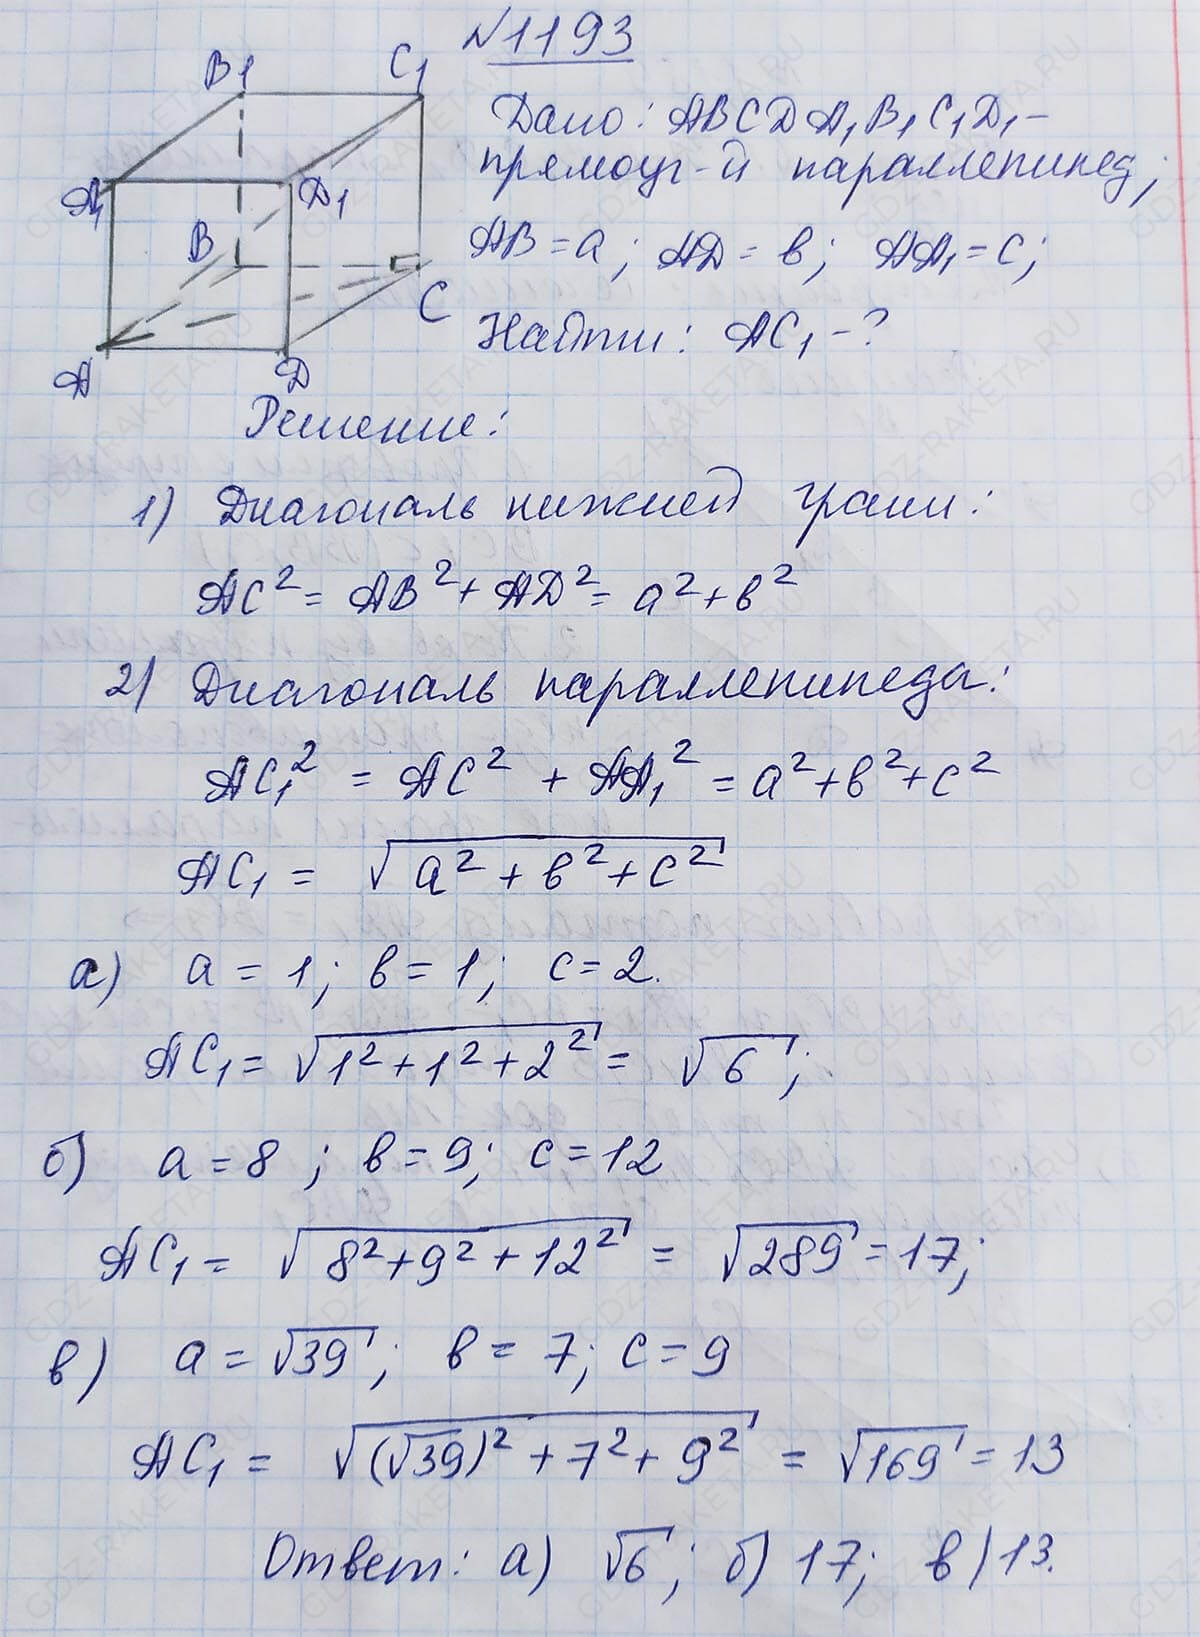 №1193
B1 C1
A1 D1
B C
A D
Дано: ABCDA₁B₁C₁D₁ –
прямоуг-й параллепипед;
AB = a; AD = b; AA₁ = c;
Найти: AC₁ – ?
Решение:
1) Диагональ нижней грани:
AC² = AB² + AD² = a² + b²
2) Диагональ параллепипеда:
AC₁² = AC² + AA₁² = a² + b² + c²
AC₁ = √(a² + b² + c²)
а) a = 1; b = 1; c = 2.
AC₁ = √(1² + 1² + 2²) = √6;
б) a = 8; b = 9; c = 12
AC₁ = √(8² + 9² + 12²) = √289 = 17;
в) a = √39; b = 7; c = 9
AC₁ = √((√39)² + 7² + 9²) = √169 = 13
Ответ: а) √6; б) 17; в) 13.
GDZ-RAKETA.RU